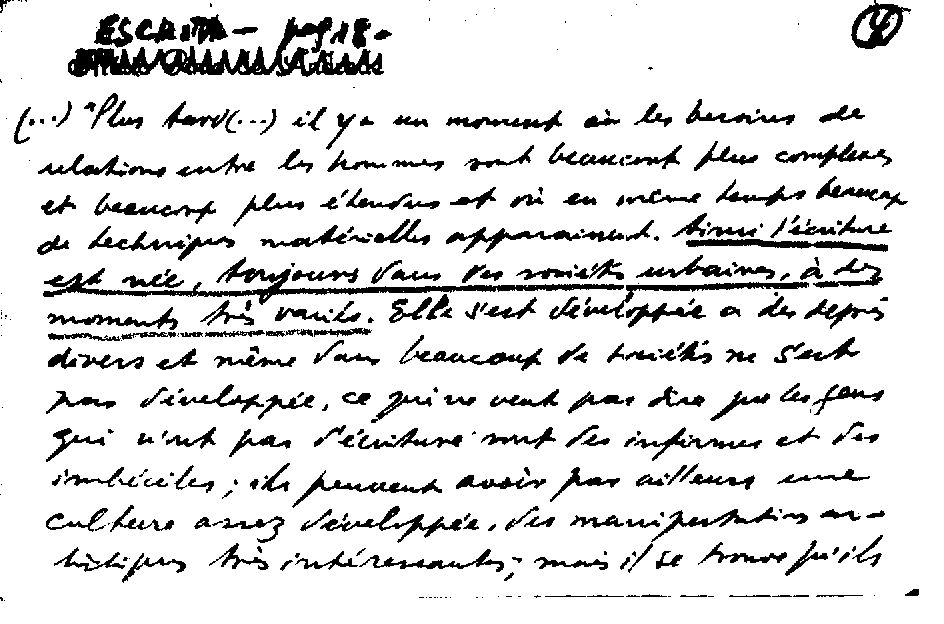 ESCRITA - pag 18 -
4
(...) "Plus tard (...) il y a un moment où les besoins de
relations entre les hommes sont beaucoup plus complexes
et beaucoup plus étendus et où en même temps beaucoup
de techniques matérielles apparaissent. Ainsi l'écriture
est née, toujours dans des sociétés urbaines, à des
moments très variés. Elle s'est développée a des degrés
divers et même dans beaucoup de sociétés ne s'est
pas développée, ce qui ne veut pas dire que les gens
qui n'ont pas d'écriture sont des infirmes et des
imbéciles; ils peuvent avoir par ailleurs une
culture assez développée, des manifestations ar-
tistiques très intéressantes; mais il se trouve qu'ils